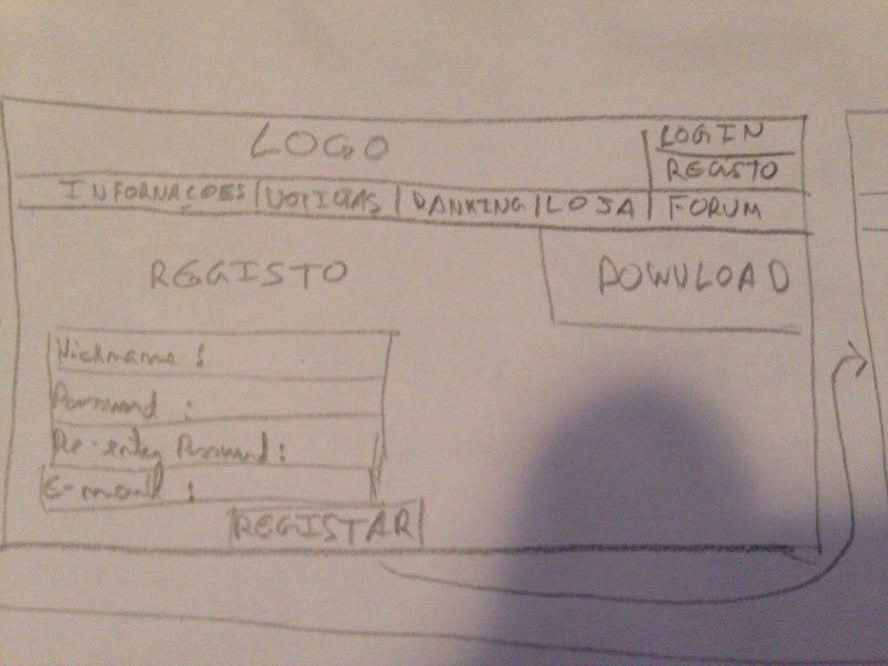 LOGO
LOGIN
REGISTO
INFORNAÇOES | NOTICIAS | RANKING | LOJA | FORUM
REGISTO
DOWNLOAD
Nickname :
Password :
Re-enter Password :
E-mail :
REGISTAR